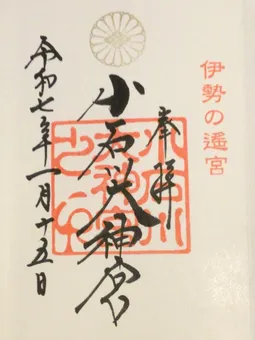 伊勢の遙宮
奉拝
小石川大神宮
令和七年一月十五日